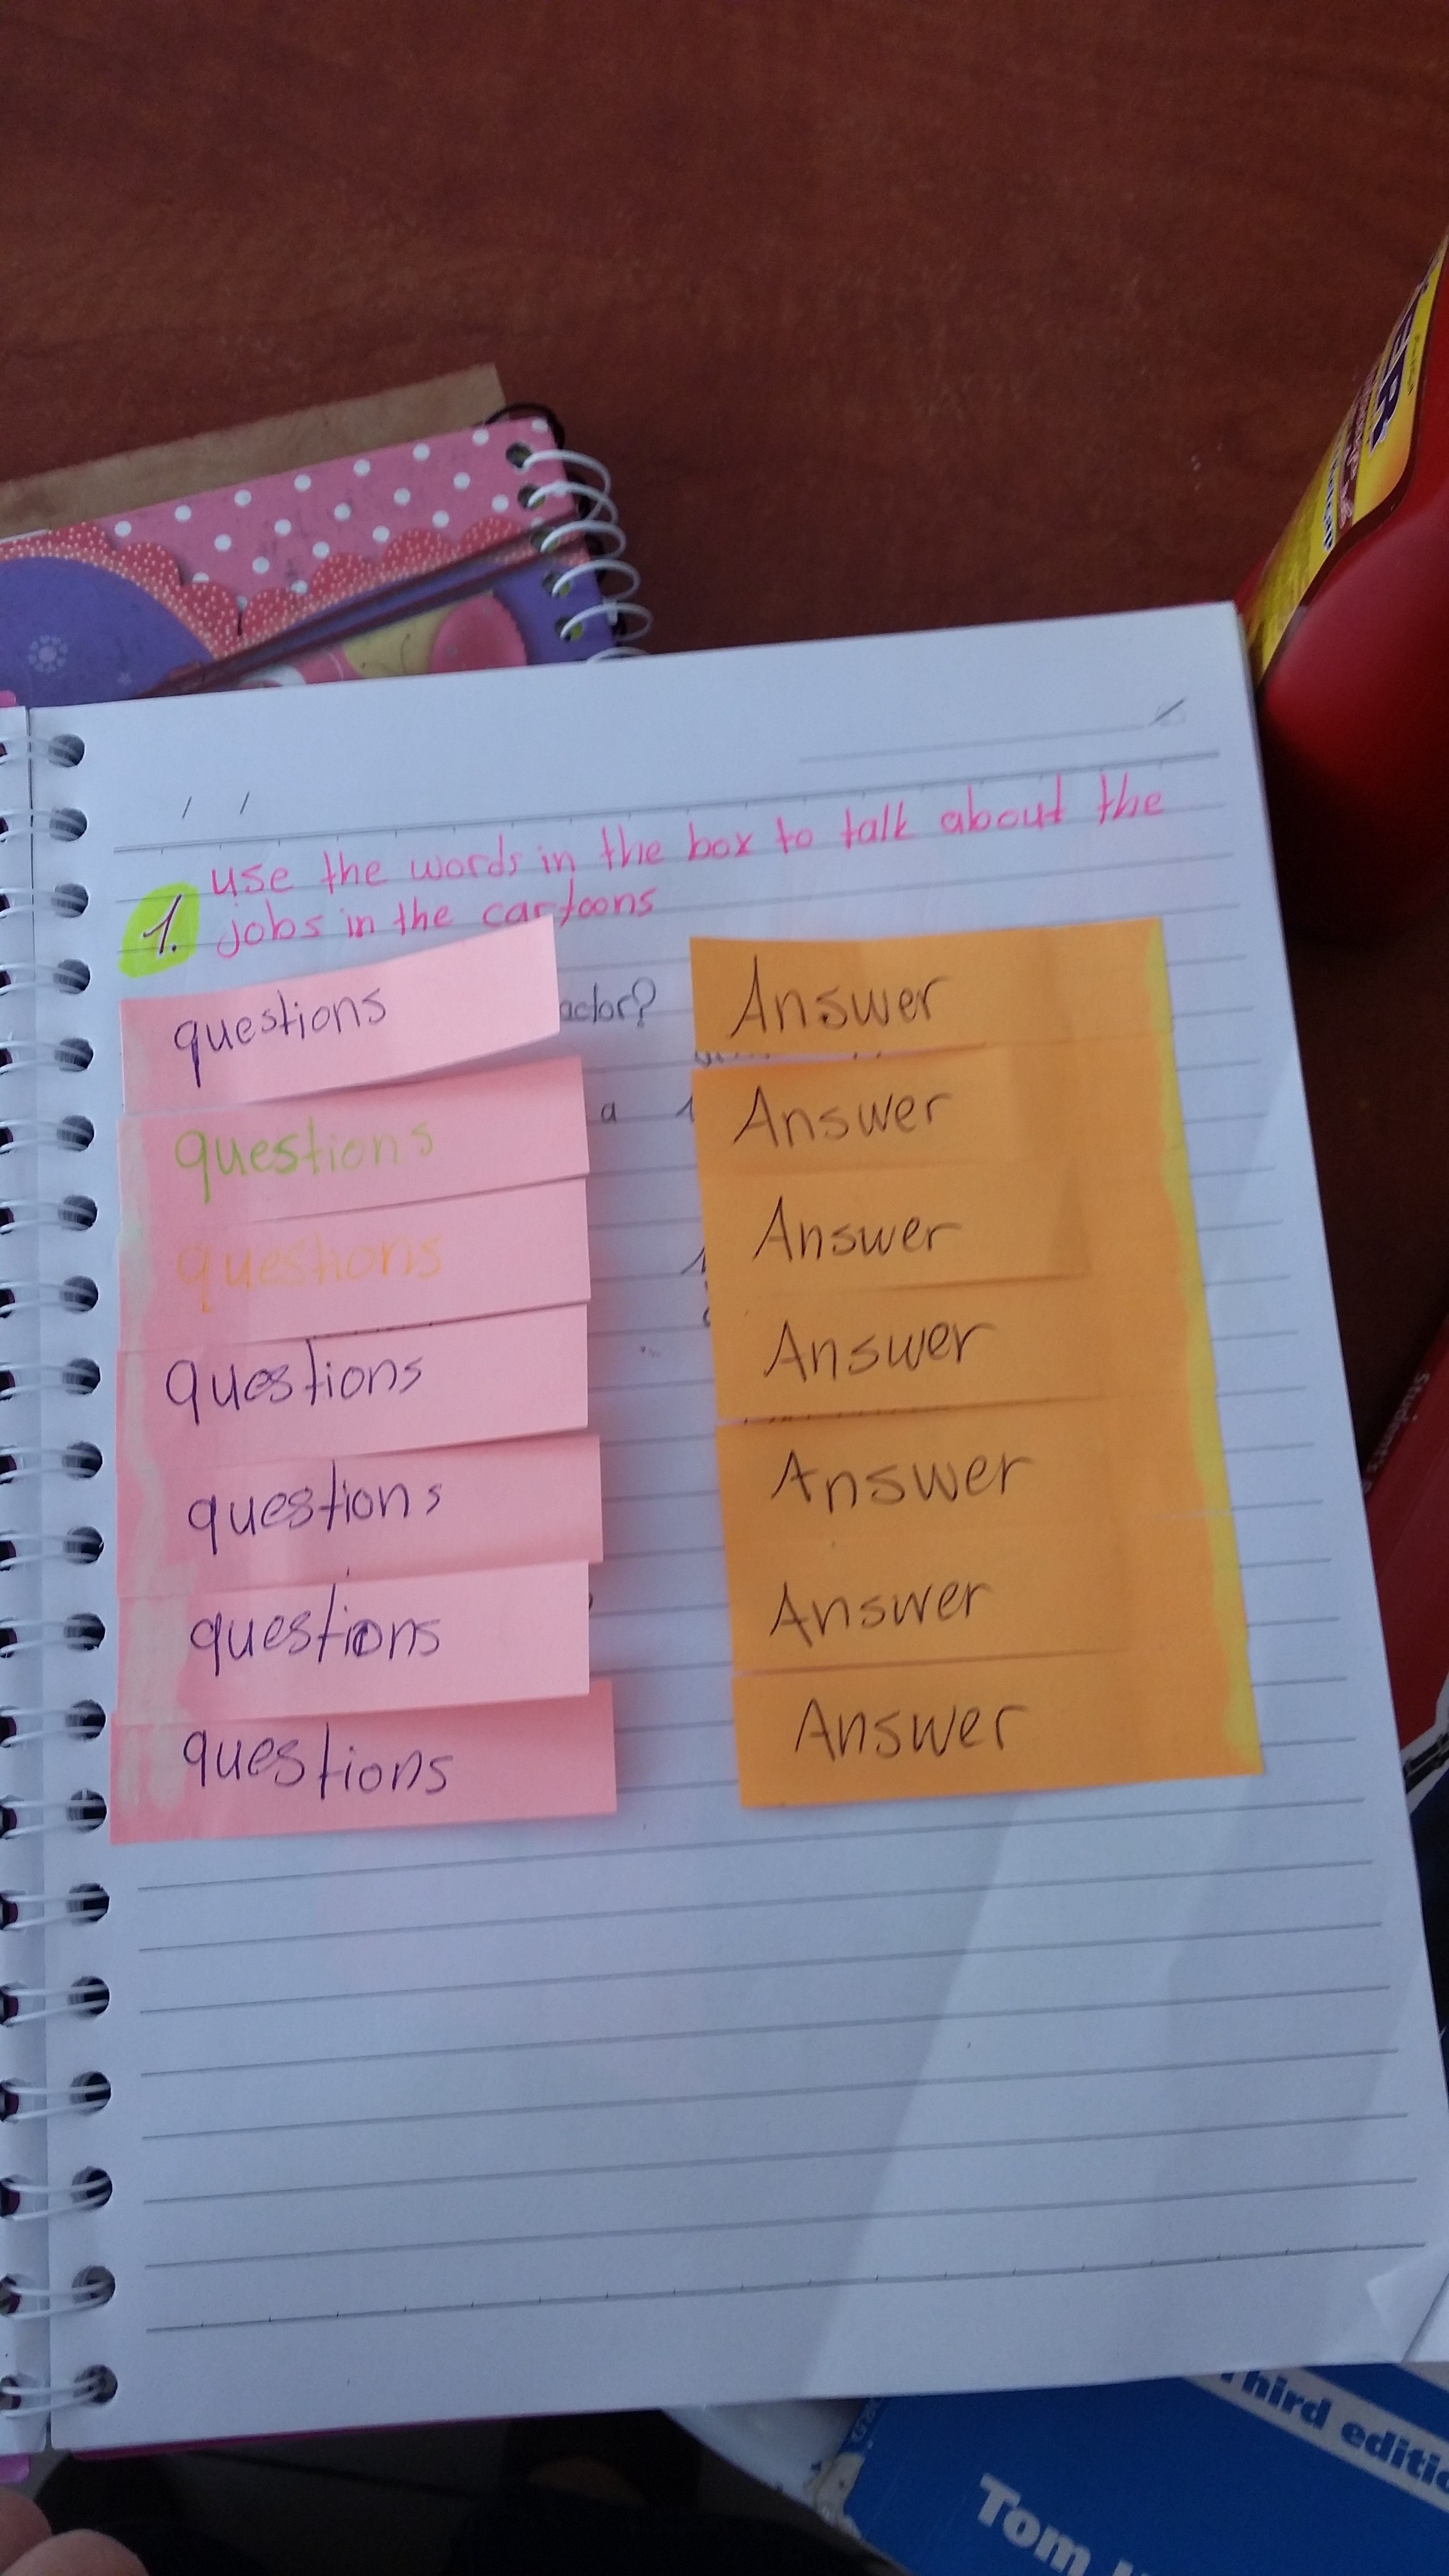 use the words in the box to talk about the
1. jobs in the cartoons
questions
actor?
Answer
questions
a
Answer
questions
Answer
questions
Answer
questions
Answer
questions
Answer
questions
Answer
Student's
Third
Tom